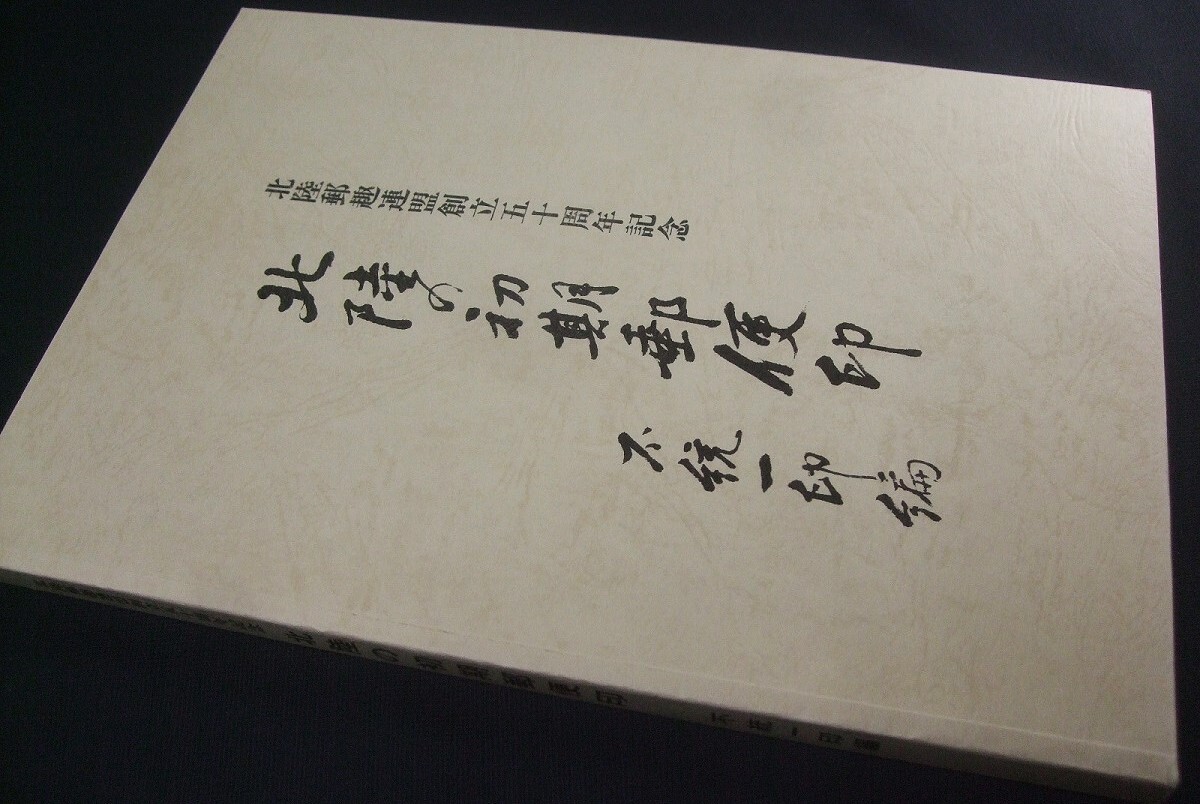 北陸郵趣連盟創立五十周年記念
北陸の初期郵便印
不統一印編
北陸の初期郵便印
不統一印編